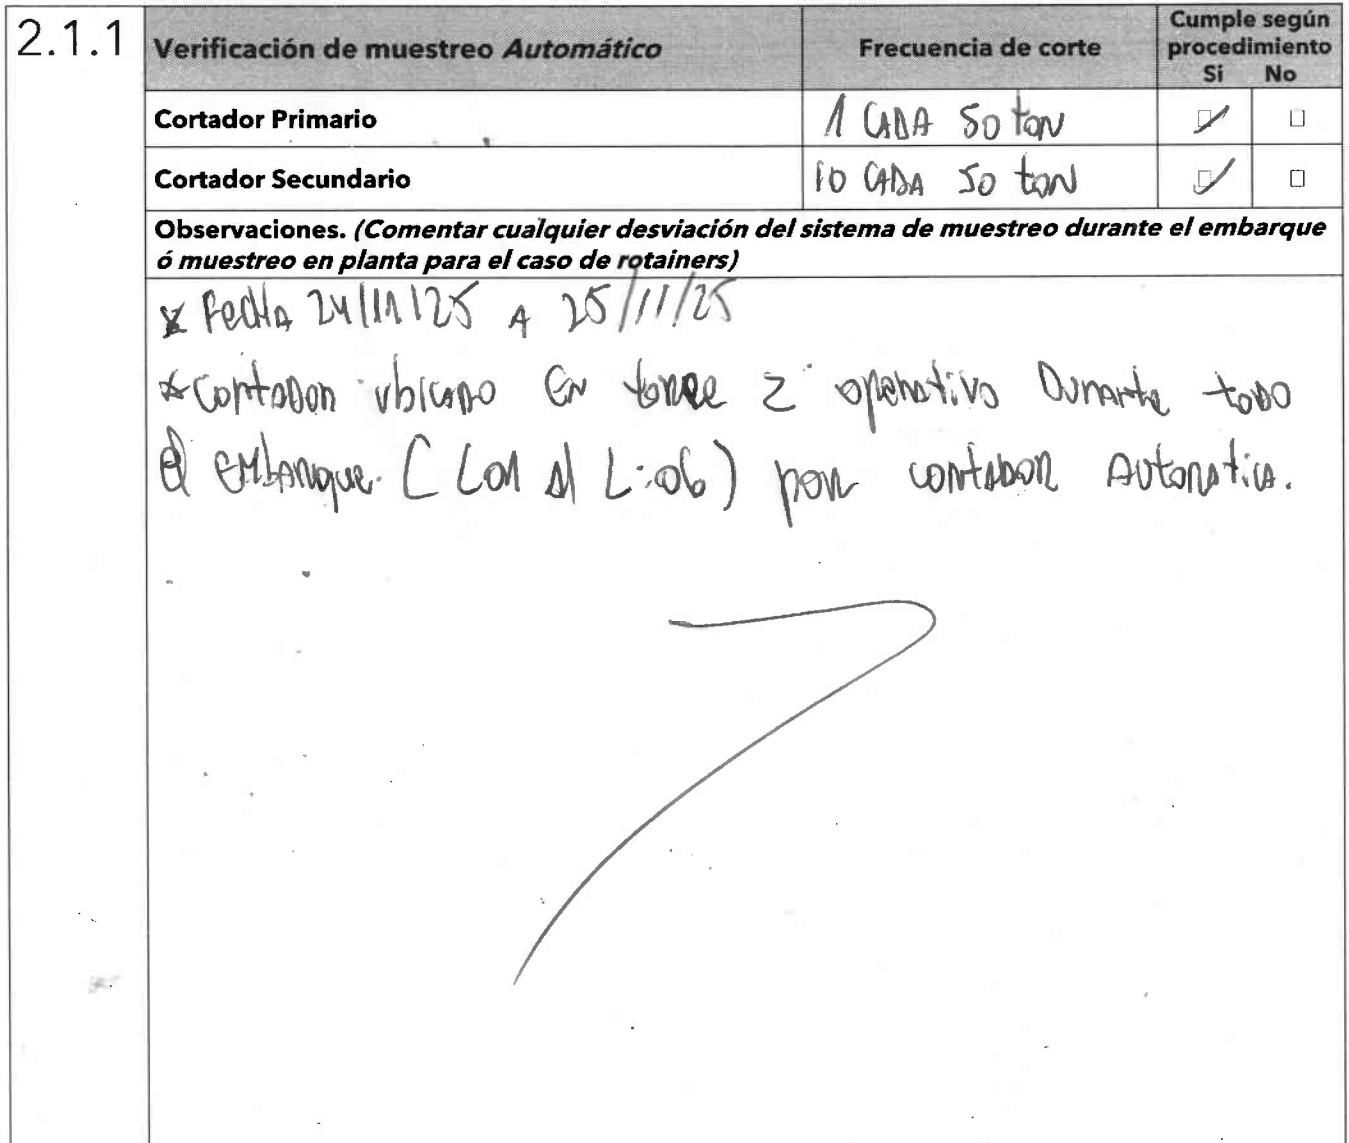 2.1.1
Verificación de muestreo Automático
Frecuencia de corte
Cumple según
procedimiento
Si No
Cortador Primario
1 CADA 50 ton
Cortador Secundario
10 CADA 50 ton
Observaciones. (Comentar cualquier desviación del sistema de muestreo durante el embarque
ó muestreo en planta para el caso de rotainers)
* Fecha 24/11/25 A 25/11/25
* Cortador ubicado en torre 2 operativo Durante todo
el embarque. ( L01 al L:06) por cortador Automatico.